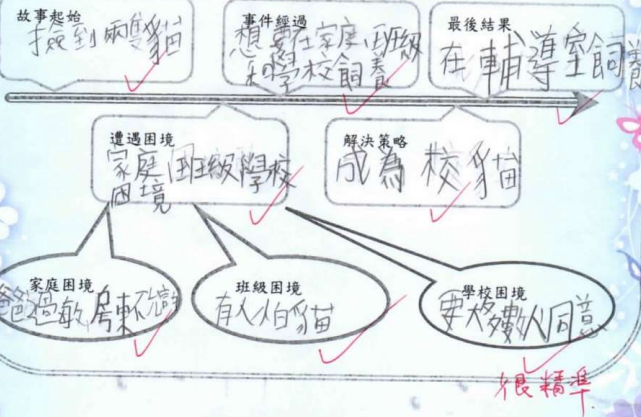 故事起始
撿到兩雙貓
事件經過
想要在家庭、班級
和學校飼養
最後結果
在輔導室飼養
遭遇困境
家庭班級學校
困境
解決策略
成為校貓
家庭困境
爸過敏,房東不
班級困境
有人怕貓
學校困境
要大多數人同意
很精準